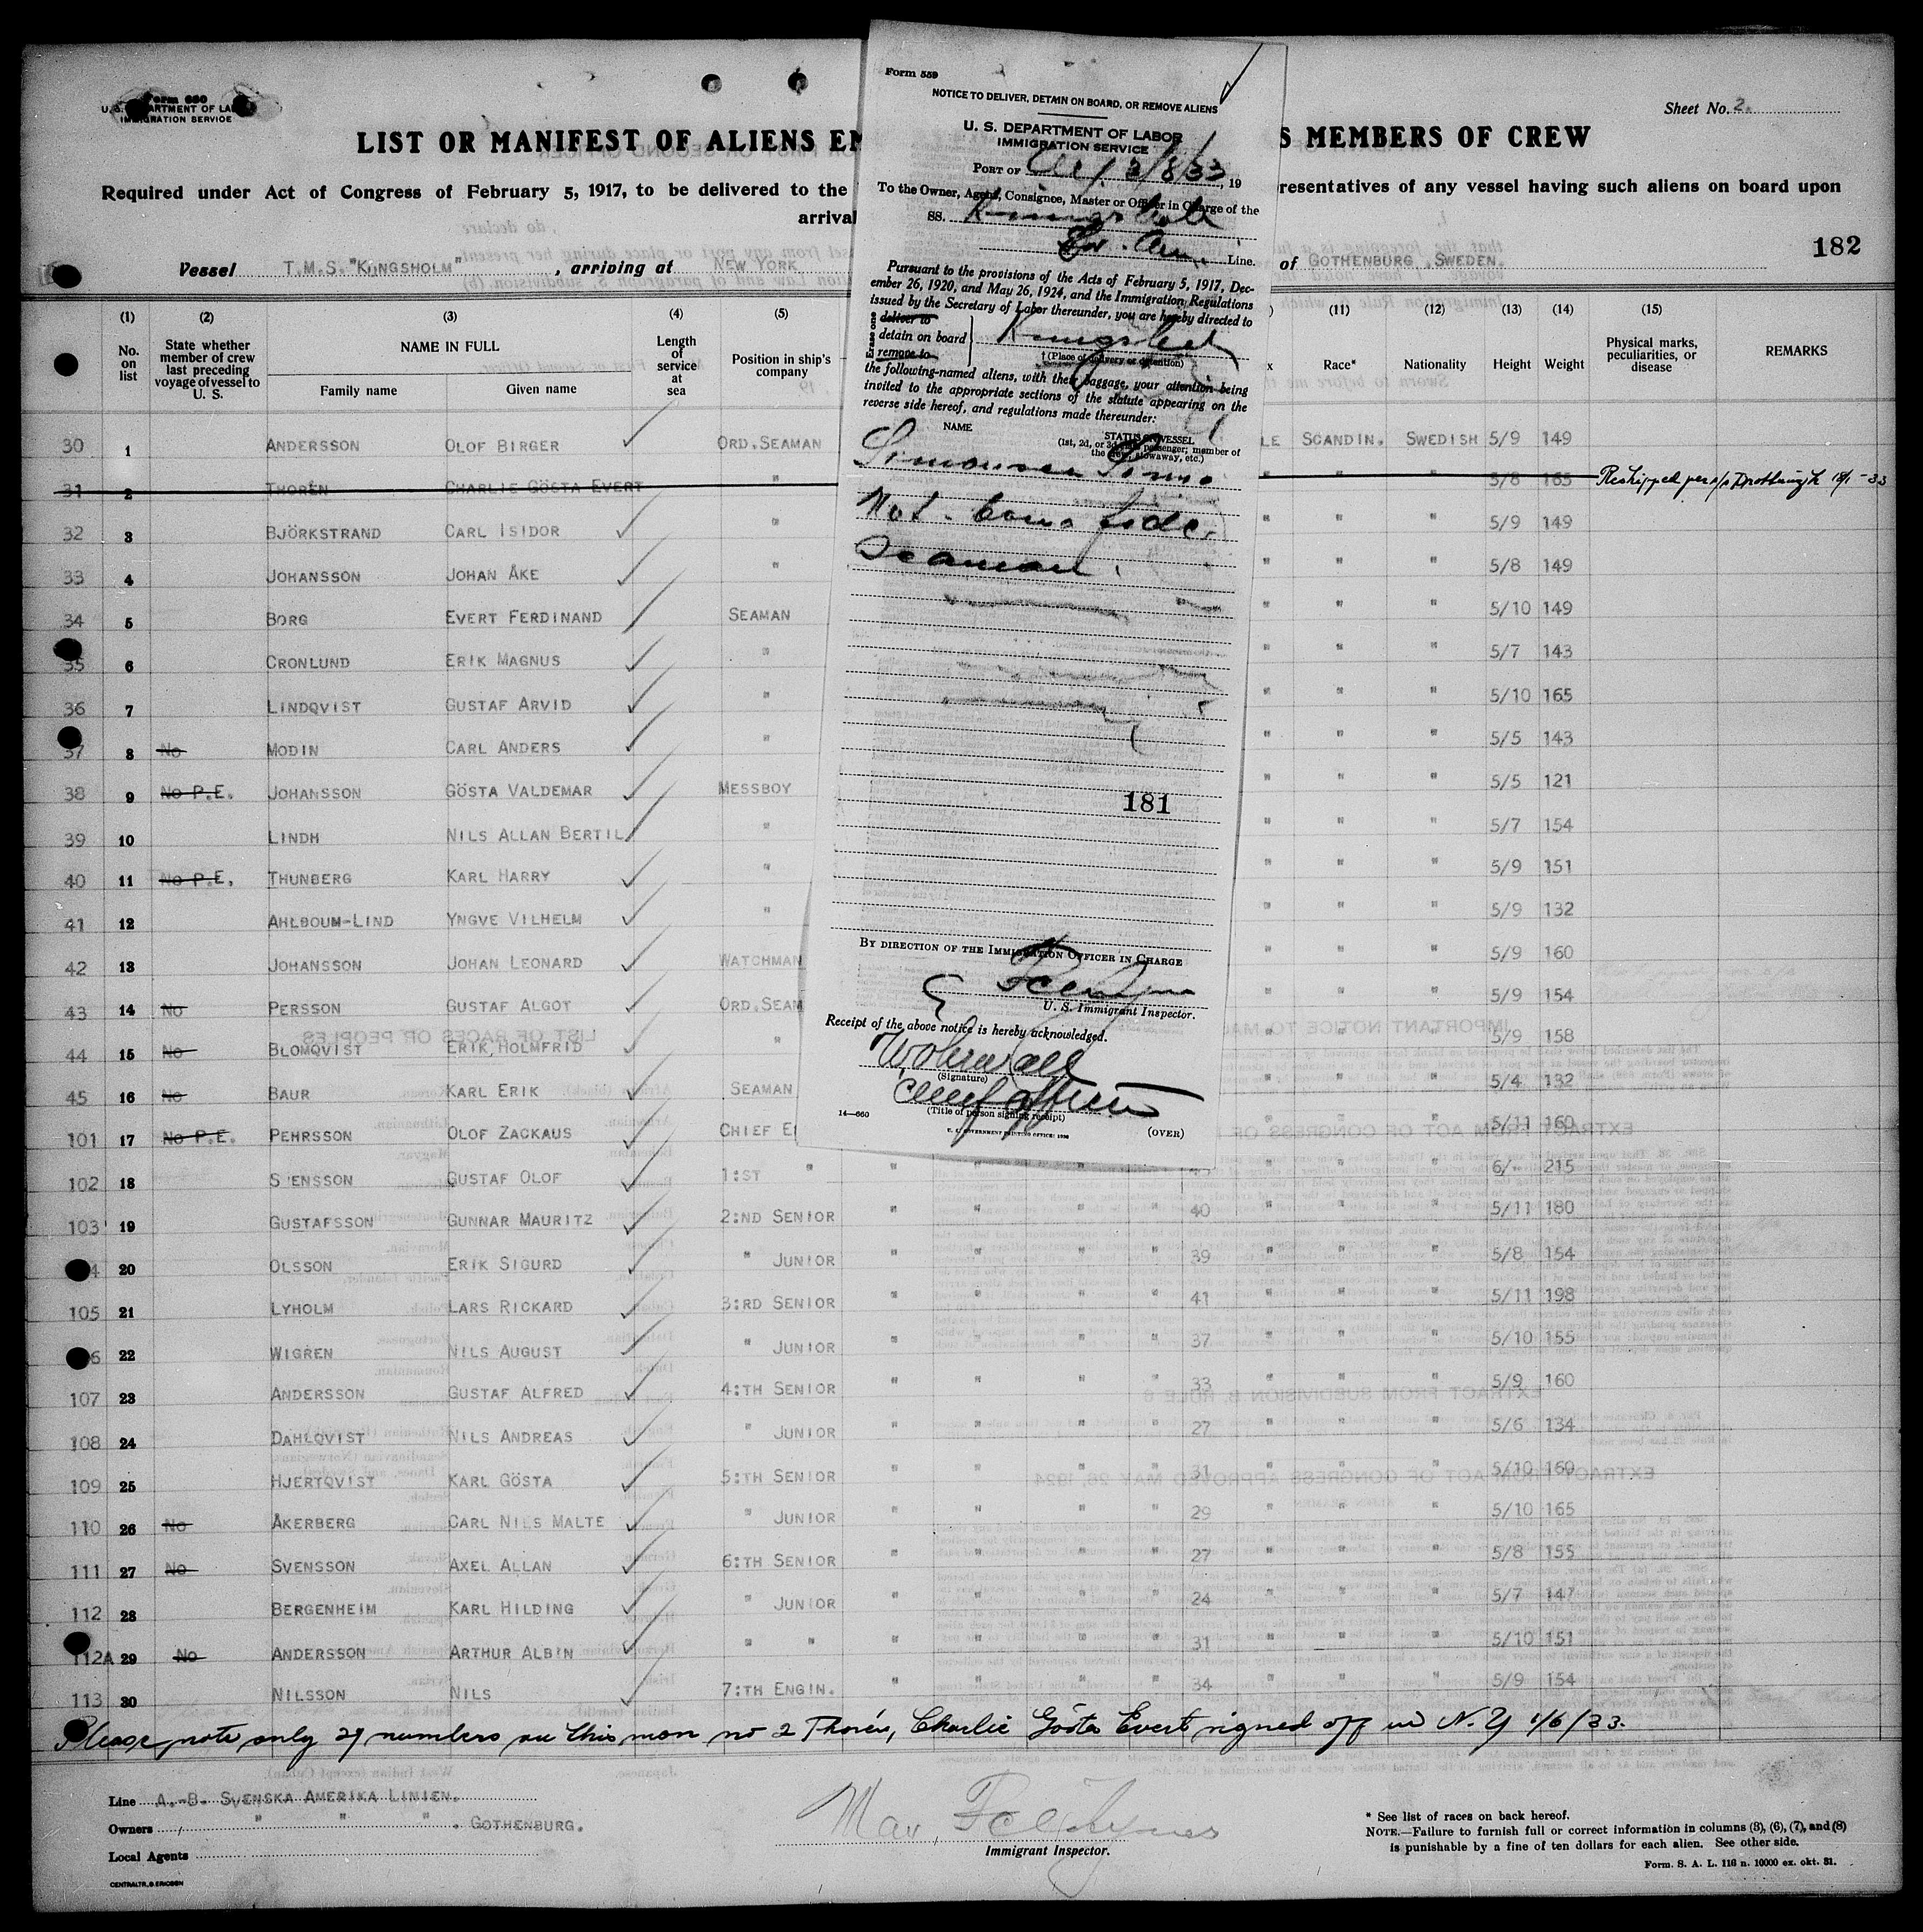 Form 680
U. S. DEPARTMENT OF LABOR
IMMIGRATION SERVICE
Sheet No. 2.
LIST OR MANIFEST OF ALIENS EM
S MEMBERS OF CREW
Required under Act of Congress of February 5, 1917, to be delivered to the
resentatives of any vessel having such aliens on board upon
arrival
182
Vessel T.M.S. "KUNGSHOLM", arriving at NEW YORK
of GOTHENBURG, SWEDEN.
Form 559
NOTICE TO DELIVER, DETAIN ON BOARD, OR REMOVE ALIENS
U. S. DEPARTMENT OF LABOR
IMMIGRATION SERVICE
PORT OF 3/8/33, 19
To the Owner, Agent, Consignee, Master or Officer in Charge of the
SS. Kungsholm
Sw. Am. Line.
Pursuant to the provisions of the Acts of February 5, 1917, Dec-
ember 26, 1920, and May 26, 1924, and the Immigration Regulations
issued by the Secretary of Labor thereunder, you are hereby directed to
Erase one
deliver to
detain on board
remove to
Kungsholm
† (Place of delivery or detention)
the following-named aliens, with their baggage, your attention being
invited to the appropriate sections of the statute appearing on the
reverse side hereof, and regulations made thereunder:
NAME
STATUS ON VESSEL
(1st, 2d, or 3d class passenger; member of
the crew, stowaway, etc.)
Simonsen
Not bona fide
Seaman.
181
BY DIRECTION OF THE IMMIGRATION OFFICER IN CHARGE
U. S. Immigrant Inspector.
Receipt of the above notice is hereby acknowledged.
(Signature)
Chief Officer
(Title of person signing receipt)
14—660
U. S. GOVERNMENT PRINTING OFFICE: 1930
(OVER)
(1) (2) (3) (4) (5) (11) (12) (13) (14) (15)
No. on list
State whether member of crew last preceding voyage of vessel to U. S.
NAME IN FULL
Family name Given name
Length of service at sea
Position in ship's company
x
Race*
Nationality
Height
Weight
Physical marks, peculiarities, or disease
REMARKS
30 1 ANDERSSON OLOF BIRGER ORD.SEAMAN LE SCANDIN. SWEDISH 5/9 149
31 2 THORÉN CHARLIE GÖSTA EVERT " " " " 5/8 165 Reshipped per s/s Drottningh
32 3 BJÖRKSTRAND CARL ISIDOR " " " " 5/9 149
33 4 JOHANSSON JOHAN ÅKE " " " " 5/8 149
34 5 BORG EVERT FERDINAND SEAMAN " " " 5/10 149
35 6 CRONLUND ERIK MAGNUS " " " " 5/7 143
36 7 LINDQVIST GUSTAF ARVID " " " " 5/10 165
37 8 No MODIN CARL ANDERS " " " " 5/5 143
38 9 No P.E. JOHANSSON GÖSTA VALDEMAR MESSBOY " " " 5/5 121
39 10 LINDH NILS ALLAN BERTIL " " " " 5/7 154
40 11 No P.E. THUNBERG KARL HARRY " " " " 5/9 151
41 12 AHLBOUM-LIND YNGVE VILHELM " " " " 5/9 132
42 13 JOHANSSON JOHAN LEONARD WATCHMAN " " " 5/9 160
43 14 No PERSSON GUSTAF ALGOT ORD.SEAM " " " 5/9 154
44 15 No BLOMQVIST ERIK HOLMFRID " " " " 5/9 158
45 16 No BAUR KARL ERIK SEAMAN " " " 5/4 132
101 17 No P.E. PEHRSSON OLOF ZACKAUS CHIEF E " " " 5/11 160
102 18 SVENSSON GUSTAF OLOF 1:ST " " " " " " " " 6/- 215
103 19 GUSTAFSSON GUNNAR MAURITZ 2:ND SENIOR " " " " 40 " " " 5/11 180
104 20 OLSSON ERIK SIGURD " JUNIOR " " " " 39 " " " 5/8 154
105 21 LYHOLM LARS RICKARD 3:RD SENIOR " " " " 41 " " " 5/11 198
106 22 WIGREN NILS AUGUST " JUNIOR " " " " 37 " " " 5/10 155
107 23 ANDERSSON GUSTAF ALFRED 4:TH SENIOR " " " " 33 " " " 5/9 160
108 24 DAHLQVIST NILS ANDREAS " JUNIOR " " " " 27 " " " 5/6 134
109 25 HJERTQVIST KARL GÖSTA 5:TH SENIOR " " " " 31 " " " 5/10 160
110 26 No ÅKERBERG CARL NILS MALTE " JUNIOR " " " " 29 " " " 5/10 165
111 27 No SVENSSON AXEL ALLAN 6:TH SENIOR " " " " 27 " " " 5/8 155
112 28 BERGENHEIM KARL HILDING " JUNIOR " " " " 24 " " " 5/7 147
112A 29 No ANDERSSON ARTHUR ALBIN " " " " " " 31 " " " 5/10 151
113 30 NILSSON NILS 7:TH ENGIN. " " " " 34 " " " 5/9 154
Please note only 29 numbers on this man no 2 Thorén, Charlie Gösta Evert signed off in N.Y 1/6/33.
Line A.-B. SVENSKA AMERIKA LINIEN.
Owners " " " . GOTHENBURG.
Local Agents
CENTRALTR. G. ERICSON
Immigrant Inspector.
* See list of races on back hereof.
NOTE.—Failure to furnish full or correct information in columns (3), (6), (7), and (8)
is punishable by a fine of ten dollars for each alien. See other side.
Form. S. A. L. 116 n. 10000 ex. okt. 31.